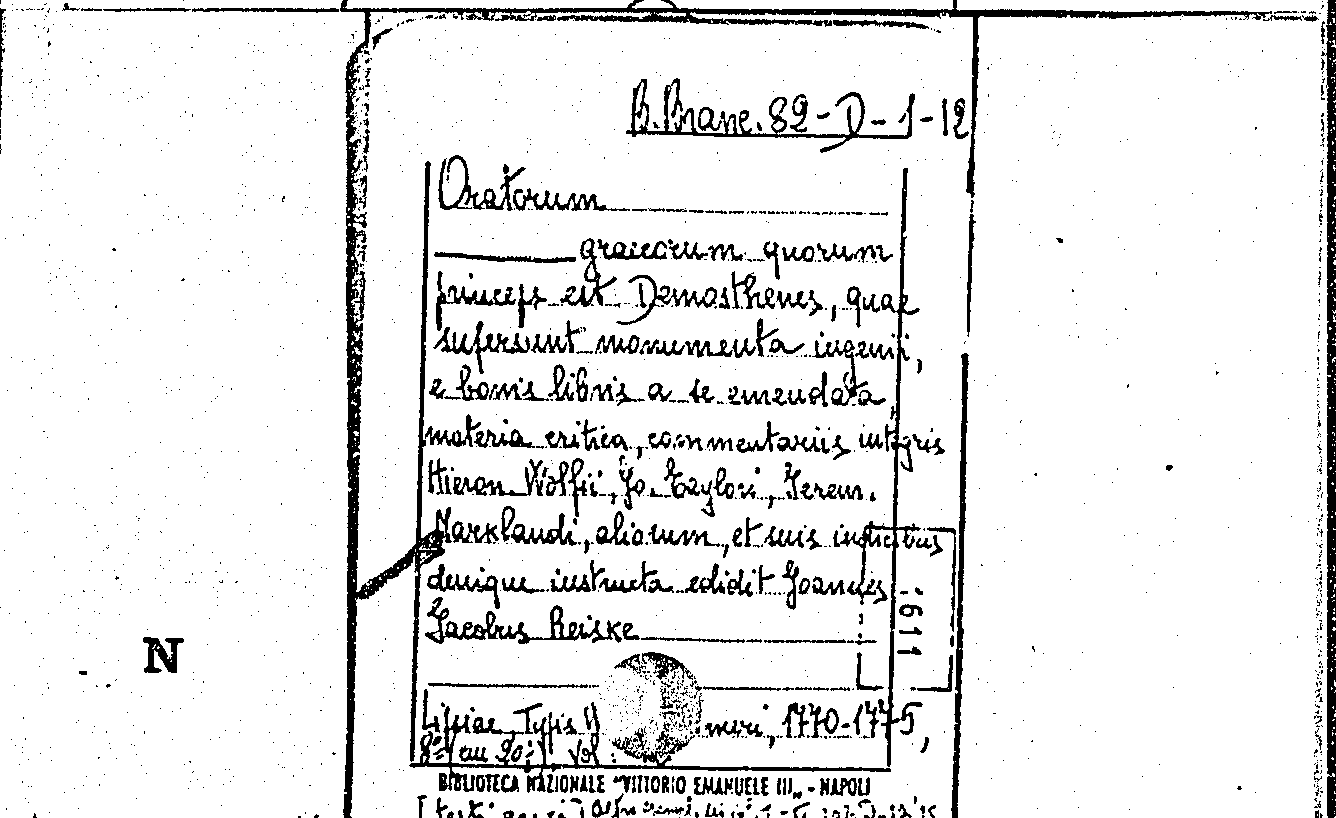 B. Branc. 82-D-1-12
Oratorum
graecorum quorum
princeps est Demosthenes, quae
supersunt monumenta ingenii,
e bonis libris a se emendata,
materia critica, commentariis integris
Hieron. Wolfii, Jo. Taylori, Jerem.
Marklandi, aliorum, et suis indicibus
denique instructa edidit Joannes
Jacobus Reiske
611
N
Lipsiae, Typis meri, 1770-1775,
8° (cm 20), vol.
BIBLIOTECA NAZIONALE "VITTORIO EMANUELE III" - NAPOLI